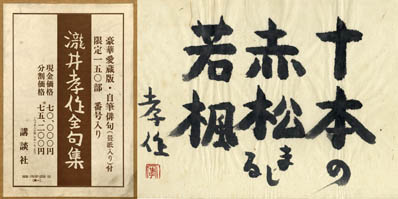 豪華愛蔵版・自筆俳句(額紙入り)付
限定一五〇部 番号入り
瀧井孝作全句集
現金価格 七〇、〇〇〇円
分割価格 七五、二〇〇円
講談社
十本の
赤松まじる
若楓
孝作